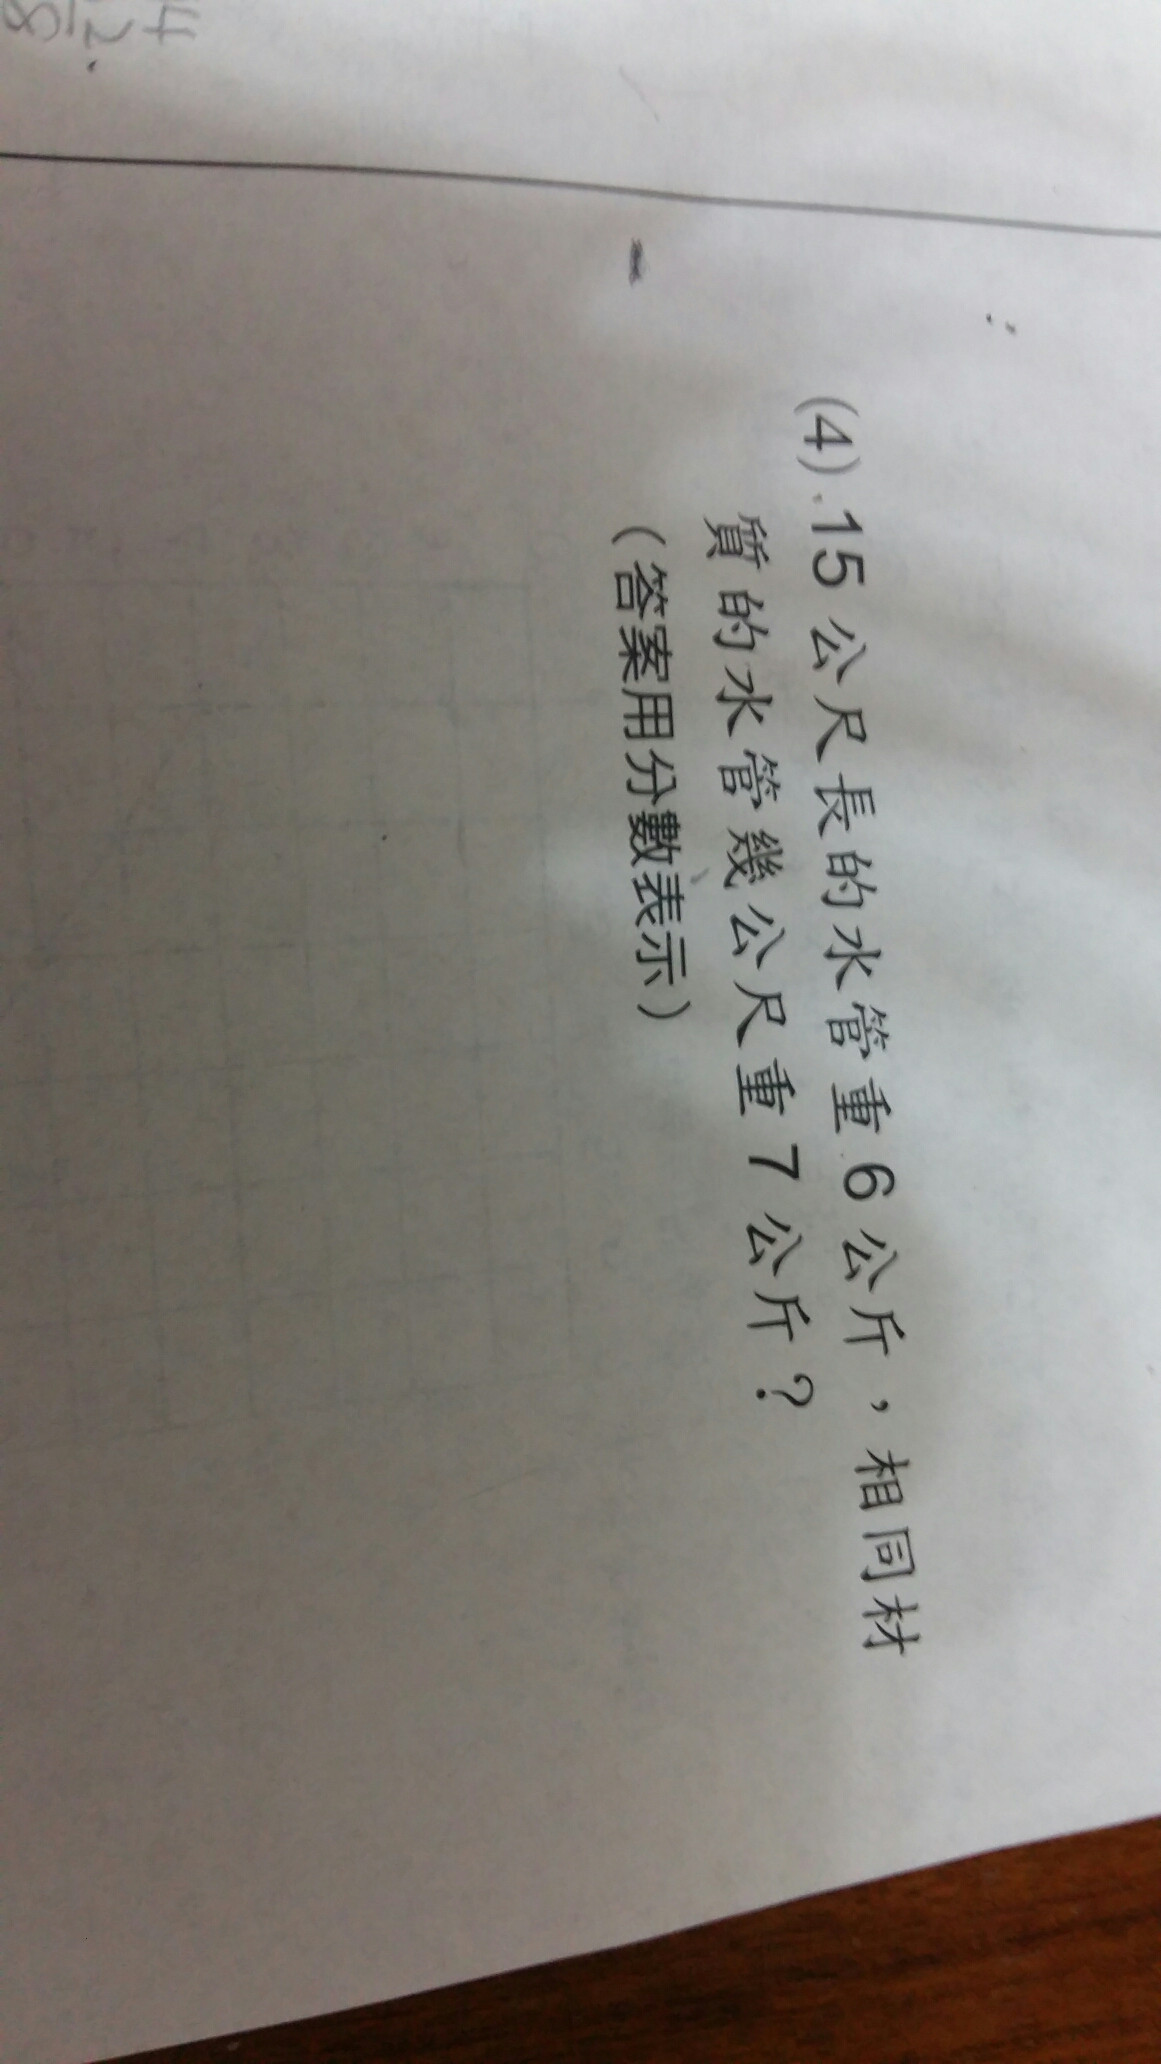 (4). 15公尺長的水管重6公斤，相同材
質的水管幾公尺重7公斤？
（答案用分數表示）